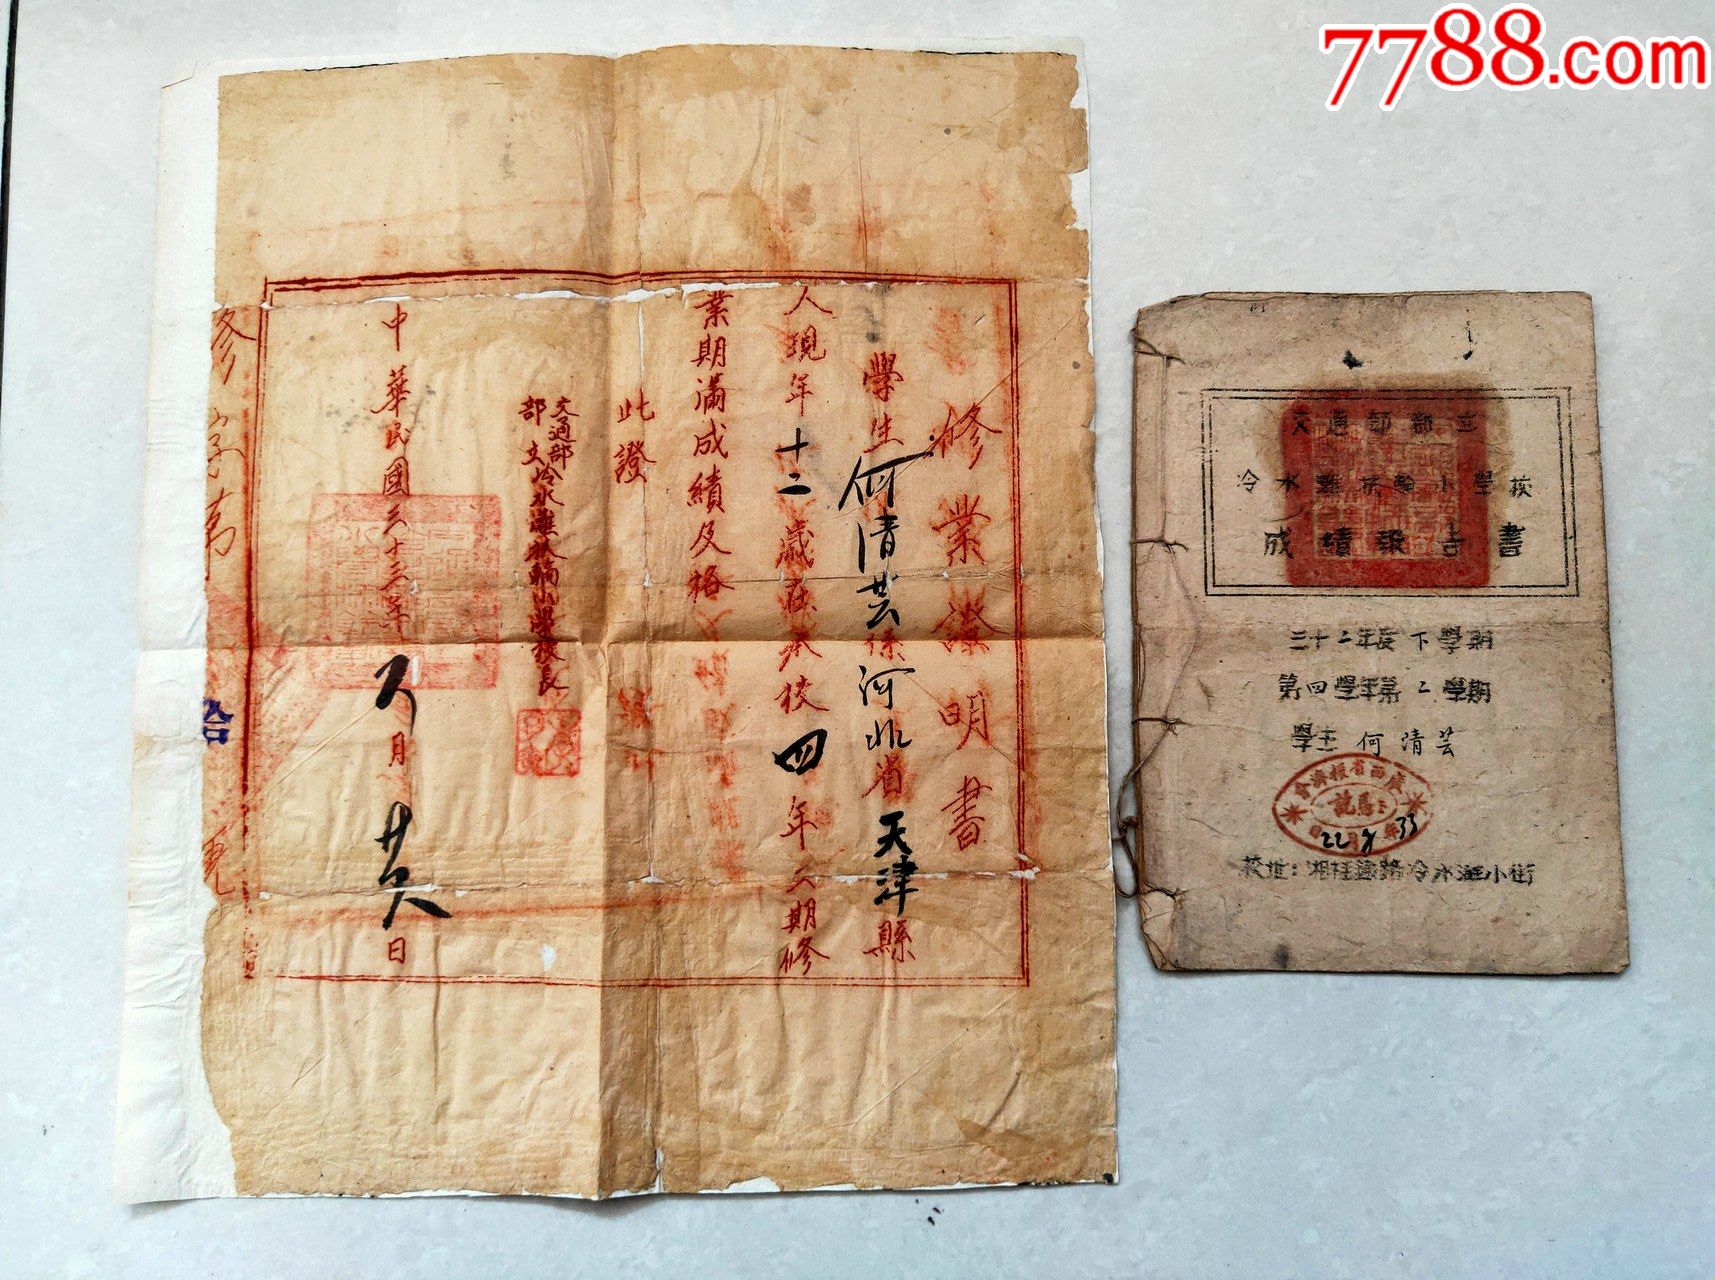 7788.com
修業證明書
學生何清芸係河北省天津縣
人現年十二歲在本校四年二期修
業期滿成績及格
此證
交通部
部立冷水灘扶輪小學校長
中華民國三十三年 月 日
交通部部立
冷水灘扶輪小學校
成績報告書
三十二年度下學期
第四學年第二學期
學生 何清芸
廣西省振濟會
33 年 月 22 日
校址：湘桂鐵路冷水灘小街